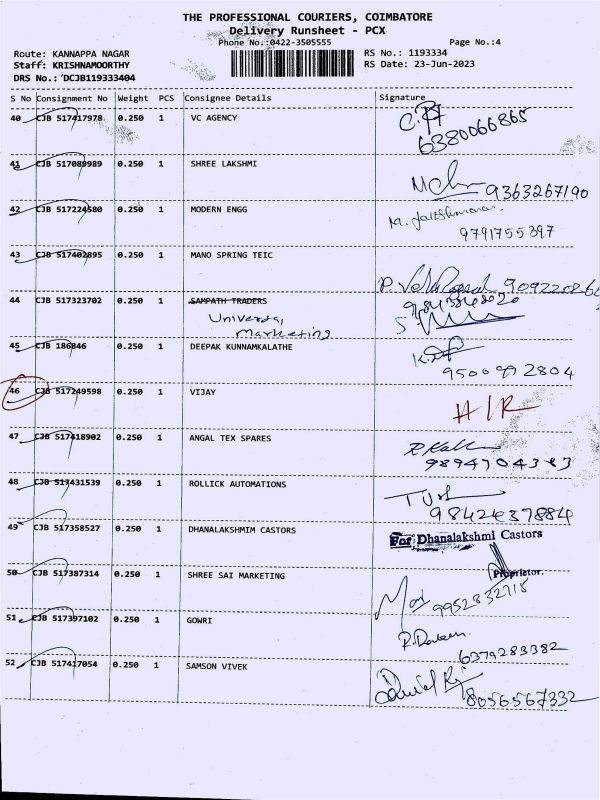 THE PROFESSIONAL COURIERS, COIMBATORE
Delivery Runsheet - PCX
Phone No.:0422-3505555 Page No.:4
Route: KANNAPPA NAGAR RS No.: 1193334
Staff: KRISHNAMOORTHY RS Date: 23-Jun-2023
DRS No.: DCJB119333404
S No Consignment No Weight PCS Consignee Details Signature
40 CJB 517417978 0.250 1 VC AGENCY
6380066865
41 CJB 517089989 0.250 1 SHREE LAKSHMI
9363267190
42 CJB 517224580 0.250 1 MODERN ENGG
9791755397
43 CJB 517402895 0.250 1 MANO SPRING TEIC
44 CJB 517323702 0.250 1 SAMPATH TRADERS
Universal
Marketing
45 CJB 186846 0.250 1 DEEPAK KUNNAMKALATHE
9500992804
46 CJB 517249598 0.250 1 VIJAY
H/R
47 CJB 517418902 0.250 1 ANGAL TEX SPARES
9894704383
48 CJB 517431539 0.250 1 ROLLICK AUTOMATIONS
9842437884
49 CJB 517358527 0.250 1 DHANALAKSHMIM CASTORS
For Dhanalakshmi Castors
Proprietor.
50 CJB 517387314 0.250 1 SHREE SAI MARKETING
9952832715
51 CJB 517397102 0.250 1 GOWRI
6379283382
52 CJB 517417054 0.250 1 SAMSON VIVEK
8056567332